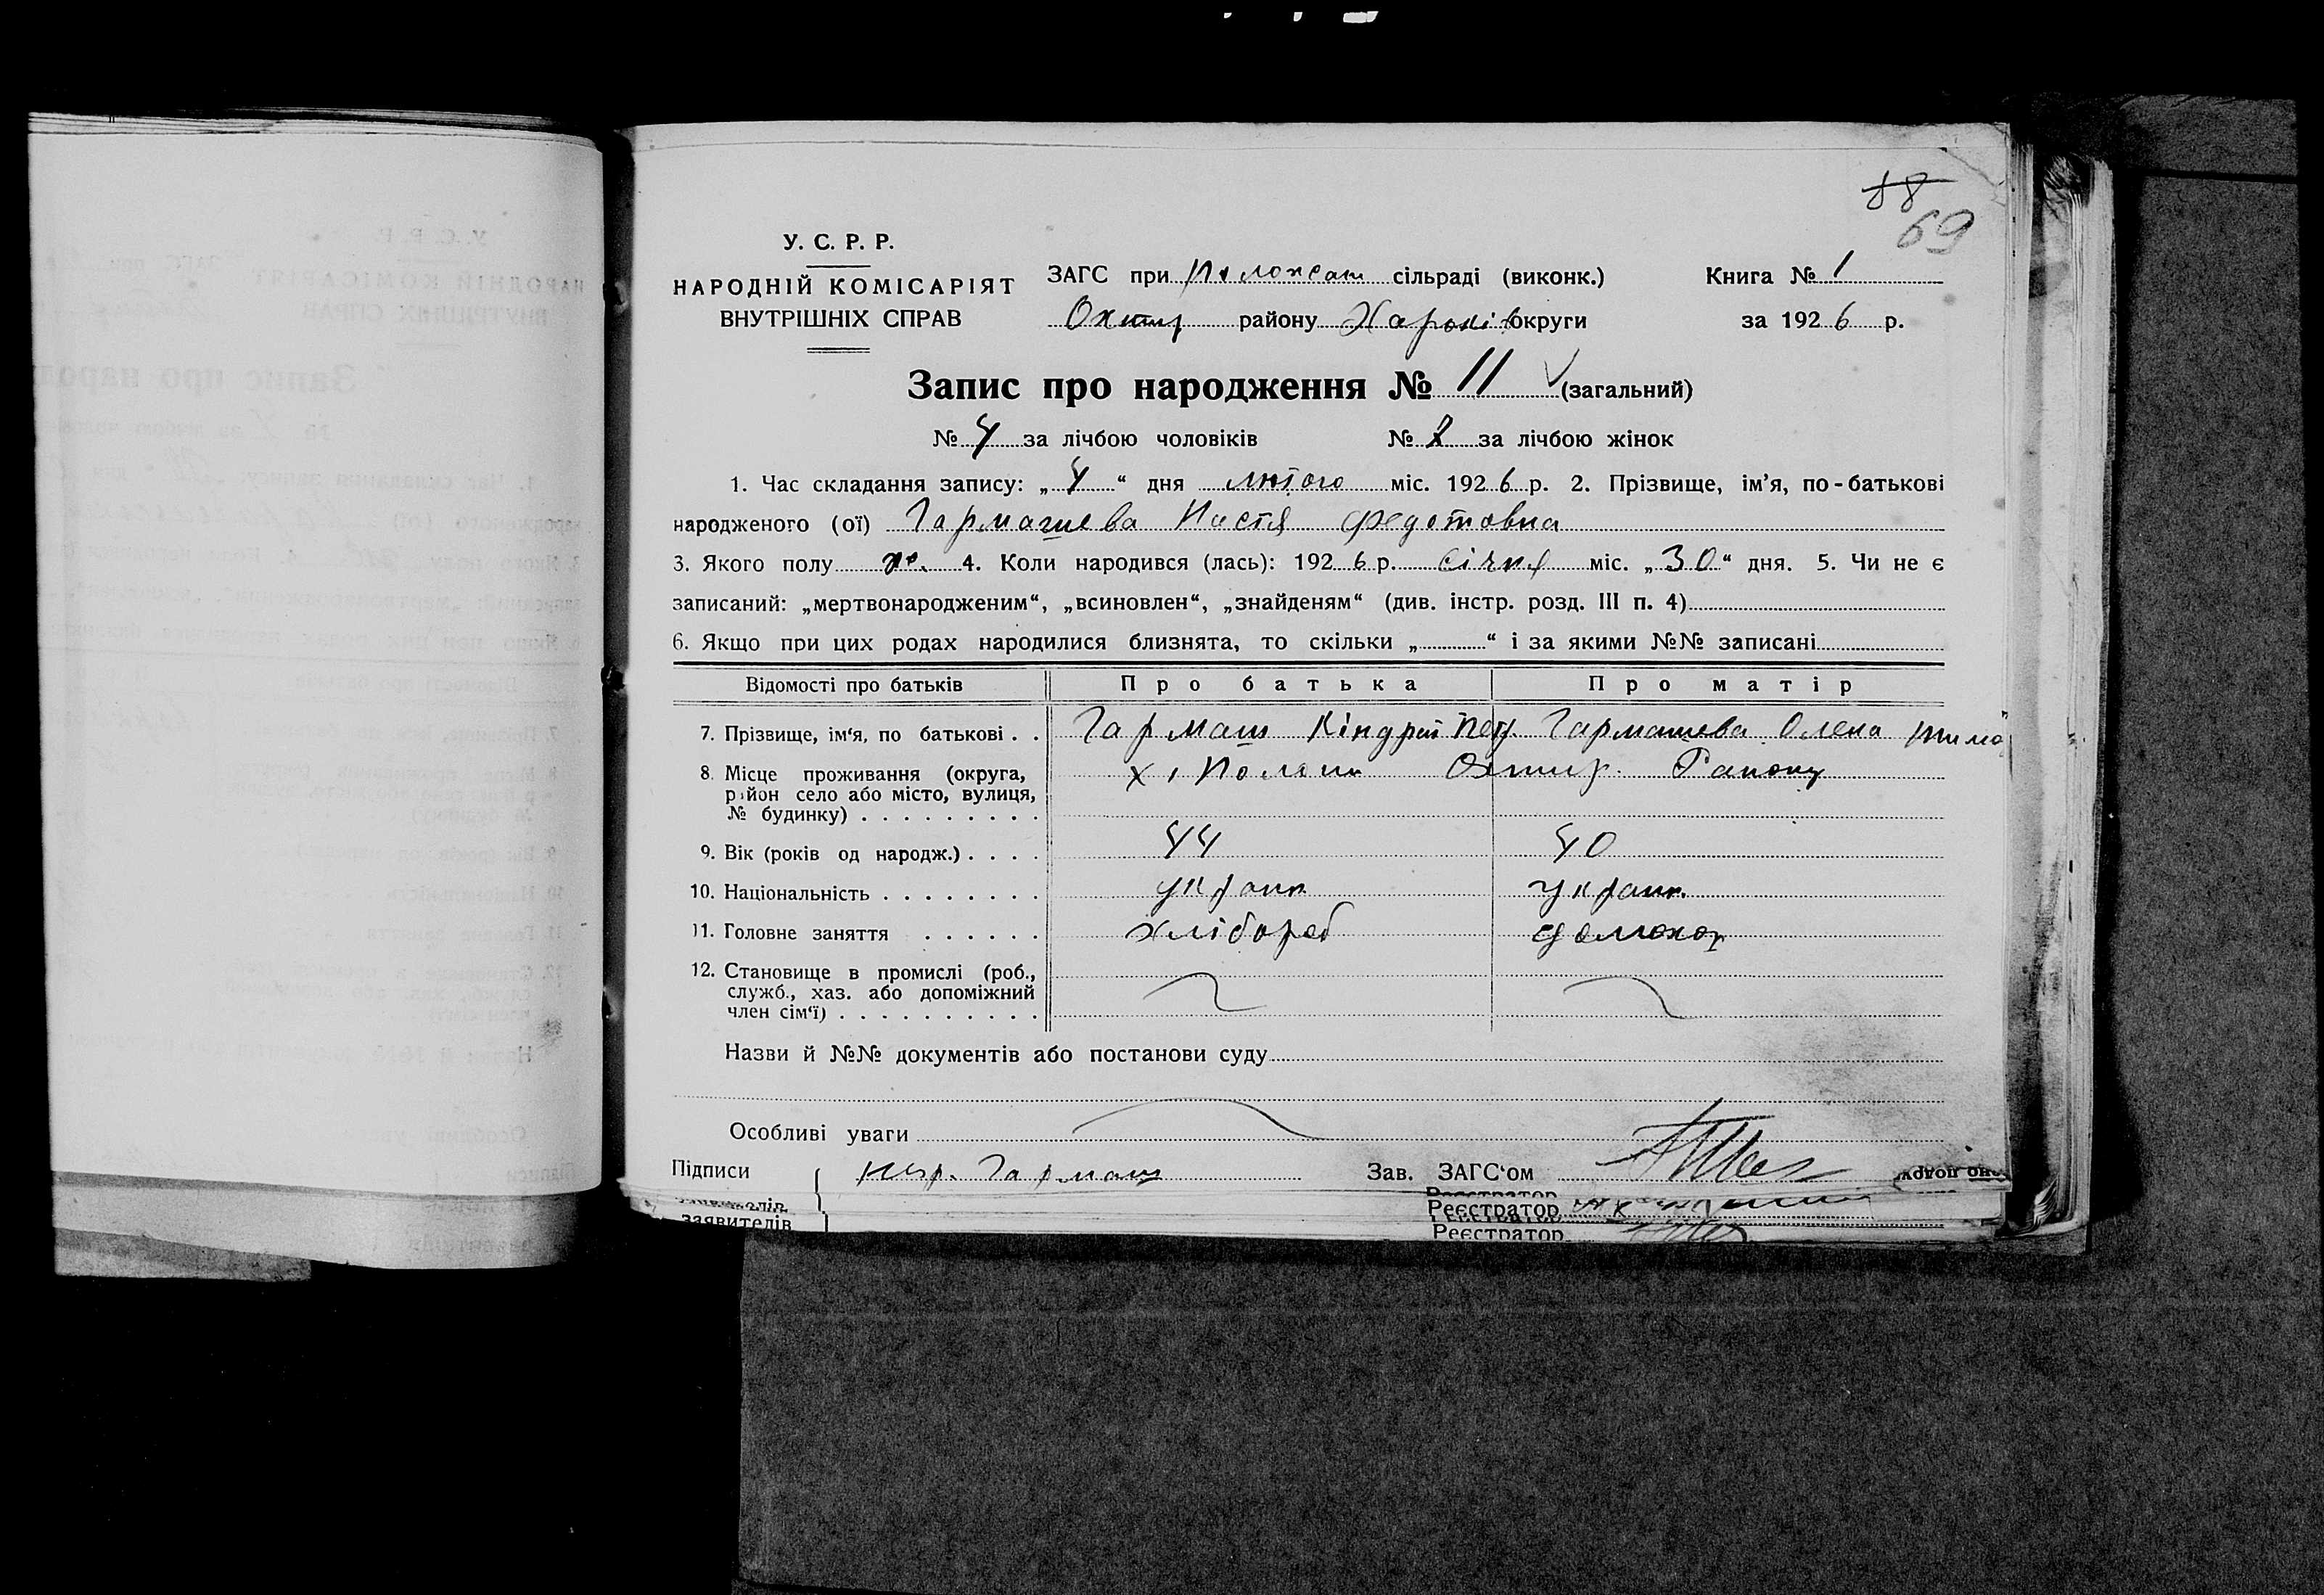 88
69
У. С. Р. Р.
НАРОДНІЙ КОМІСАРІЯТ
ВНУТРІШНІХ СПРАВ
ЗАГС при сільраді (виконк.)
Охтир району Харків округи
Книга № 1
за 192 6 р.
Запис про народження № 11 (загальний)
№ 4 за лічбою чоловіків № за лічбою жінок
1. Час складання запису: „ 4 “ дня лютого міс. 192 6 р. 2. Прізвище, ім’я, по-батькові
народженого (ої) Гармашева Настя Федотовна
3. Якого полу ж. 4. Коли народився (лась): 192 6 р. січня міс. „ 30 “ дня. 5. Чи не є
записаний: „мертвонародженим“, „всиновлен“, „знайденям“ (див. інстр. розд. III п. 4)
6. Якщо при цих родах народилися близнята, то скільки „ “ і за якими №№ записані
Відомості про батьків Про батька Про матір
7. Прізвище, ім‘я, по батькові . . Гармаш Кіндрат Пет. Гармашева Олена Тимо
8. Місце проживання (округа, х. Охтир. Району
район село або місто, вулиця,
№ будинку) . . . . . . . . .
9. Вік (років од народж.) . . . . 44 40
10. Національність . . . . . . . . україн україн.
11. Головне заняття . . . . . . хлібороб домохоз
12. Становище в промислі (роб.,
служб., хаз. або допоміжний
член сім‘ї) . . . . . . . . . .
Назви й №№ документів або постанови суду
Особливі уваги
Підписи Гармаш Зав. ЗАГС‘ом
Реєстратор
заявителів Реєстратор